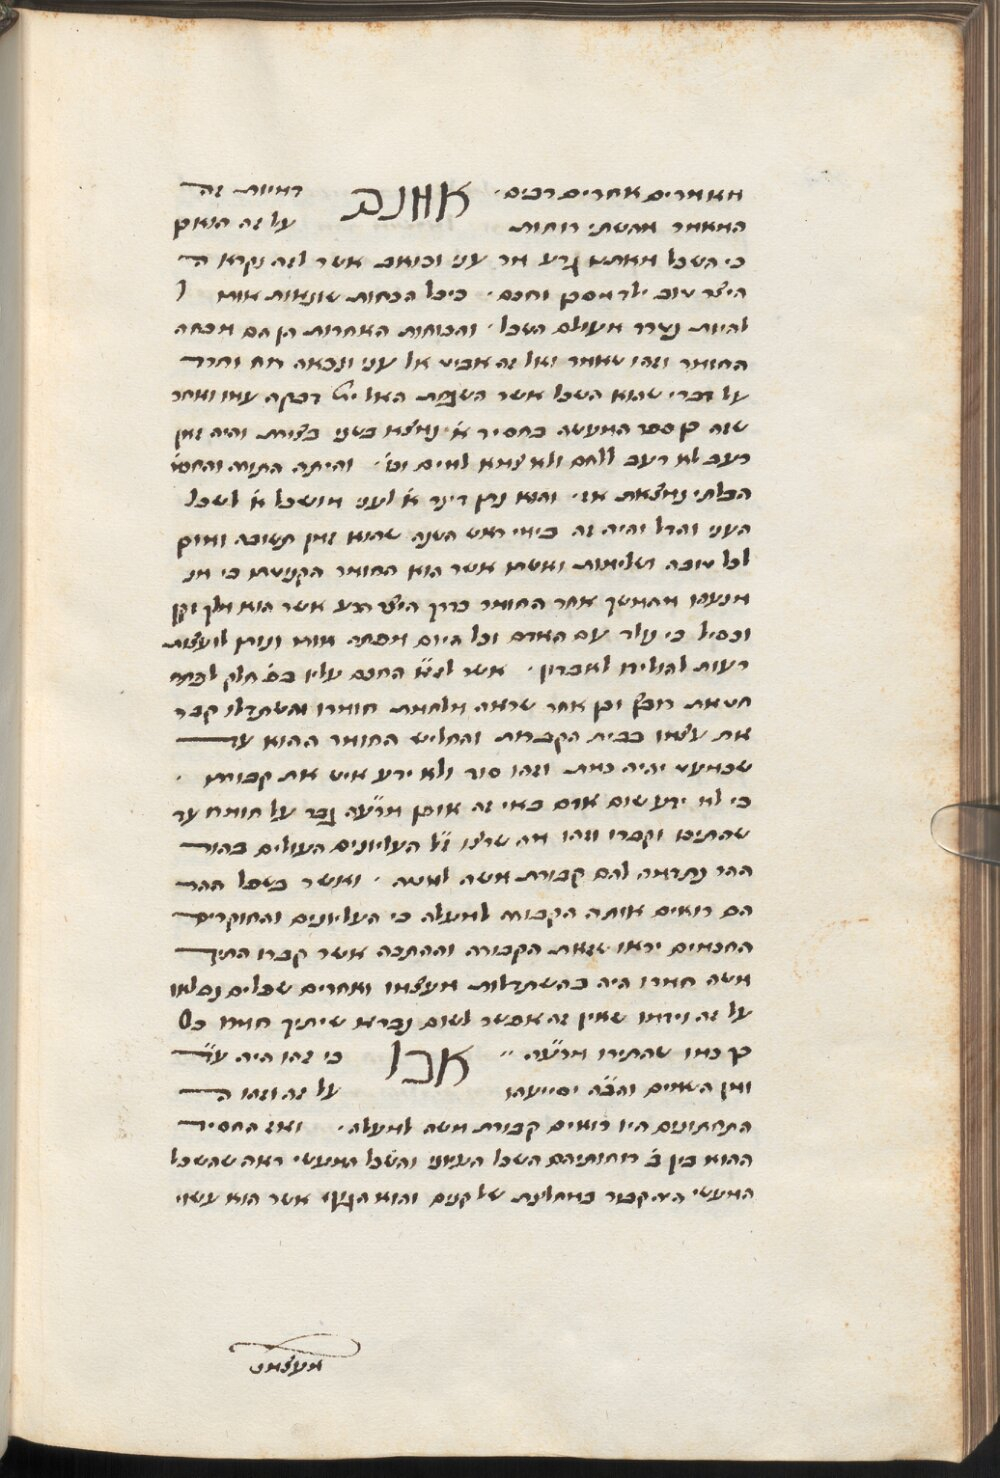 מאמרים אחרים רבים · אמנם ראיות זה
המאמר מהשתי רוחות על זה הואפ
כי השכל מאתמ נרע מר עני וכואב אשר לזה נקרא ה
היצר טוב ילד מסכן וחכם · כי כל הכחות שונאות אותו ל
להיות נפרד מעולם השכל · והכוחות האחרות הן הם מכחה
החומר וזהו שאמר ואל זה אביט אל עני ונכאה רוח וחרד
על דברי שהוא השכל אשר השגחת האל ית' דבקה עמו ואחר
שזה ספר המעשה בחסיד א' נמצא בשני בצורת והיה זמן
רעב לא רעב ללחם ולא צמא למים וכו' · והיתה התורה והחסד
הבלתי נמצאת אז · והוא נתן דינר א' לעני מושכל א' לשכל
העני והדל והיה זה בימי ראש השנה שהוא זמן תשובה
לכל טובה ושלימות ואשתו אשר הוא החומר הקניטתו כי
מנעהו מהמשך אחר החומר כדרך היצר הרע אשר הוא מלך זקן
וכסיל כי נולד עם האדם וכל היום מפתה אותו ונותן לו עצות
רעות להוליכו לאבדון · אשר לז"א החכם עליו בס' חלק לפתח
חטאת רובץ וכן אחר שראה מלחמת חומרו והשתדלו קבר
את עצמו בבית הקברות והחליש החומר ההוא עד
שכמעט יהיה כמת וזהו סוד ולא ידע איש את קבורתו ·
כי לא ידע שום אדם באי זה אופן מרע"ה גבר על חומרו עד
שהתיכו וקברו וזהו מה שרצו ז"ל העליונים העולים בהר
ההר נתדמה להם קבורת משה למטה · ואשר בשפל ההר
הם רואים אותה הקבורה למעלה כי העליונים והחוקרים
החכמים יראו שזאת הקבורה וההתכה אשר קברו התיך
משה חמרו היה בהשתדלות מעצמו ואחרים שכלים נפלאו
על זה וידמו שאין זה אפשר לשום נברא שיתיך חומרו כל
כך כמו שהתירו מרע"ה · אבל כי זהו היה עד
מן השמים והב"ה יסייעהו על זה וזהו ה
התחתונים היו רואים קבורת משה למעלה · ואז החסיד
ההוא בין ב' רוחותיהם השכל העיוני והשכל המעשי ראה שהשכל
המעשי היה קבור במחלצת של קנים והוא הגוף אשר הוא עשוי
מעצמו